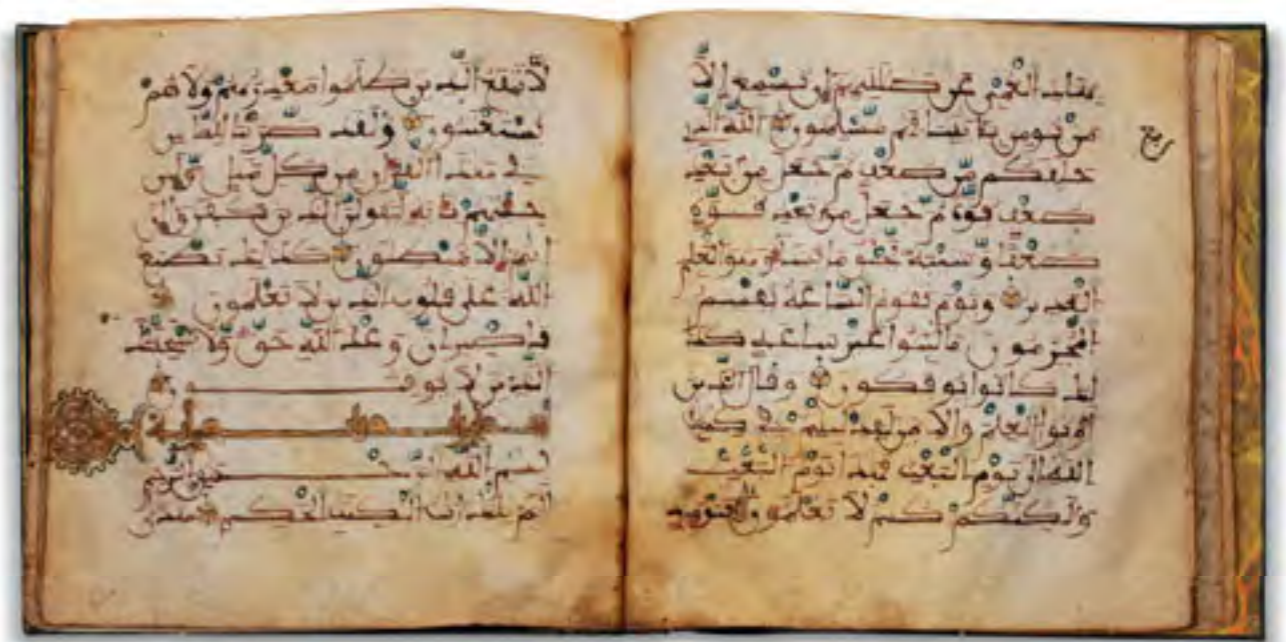 بهد العمي عن ضللتهم إن تسمع إلا
من يومن بايتنا فهم مسلمون الله الذي
ربع
خلقكم من ضعف ثم جعل من بعد
ضعف قوة ثم جعل من بعد قوة
ضعفا وشيبة يخلق ما يشاء وهو العليم
القدير ويوم تقوم الساعة يقسم
المجرمون ما لبثوا غير ساعة كذ
لك كانوا يوفكون وقال الذين
أوتوا العلم والايمن لقد لبثتم في كتب
الله إلى يوم البعث فهذا يوم البعث
ولكنكم كنتم لا تعلمون فيومئذ
لا تنفع الذين ظلموا معذرتهم ولا هم
يستعتبون ولقد ضربنا للناس
في هذا القرءان من كل مثل ولئن
جئتهم بآية ليقولن الذين كفروا إن
أنتم إلا مبطلون كذلك يطبع
الله على قلوب الذين لا يعلمون
فاصبر إن وعد الله حق ولا يستخفنك
الذين لا يوقنون
بسم الله الرحمن الرحيم
الم تلك ءايت الكتب الحكيم هدى